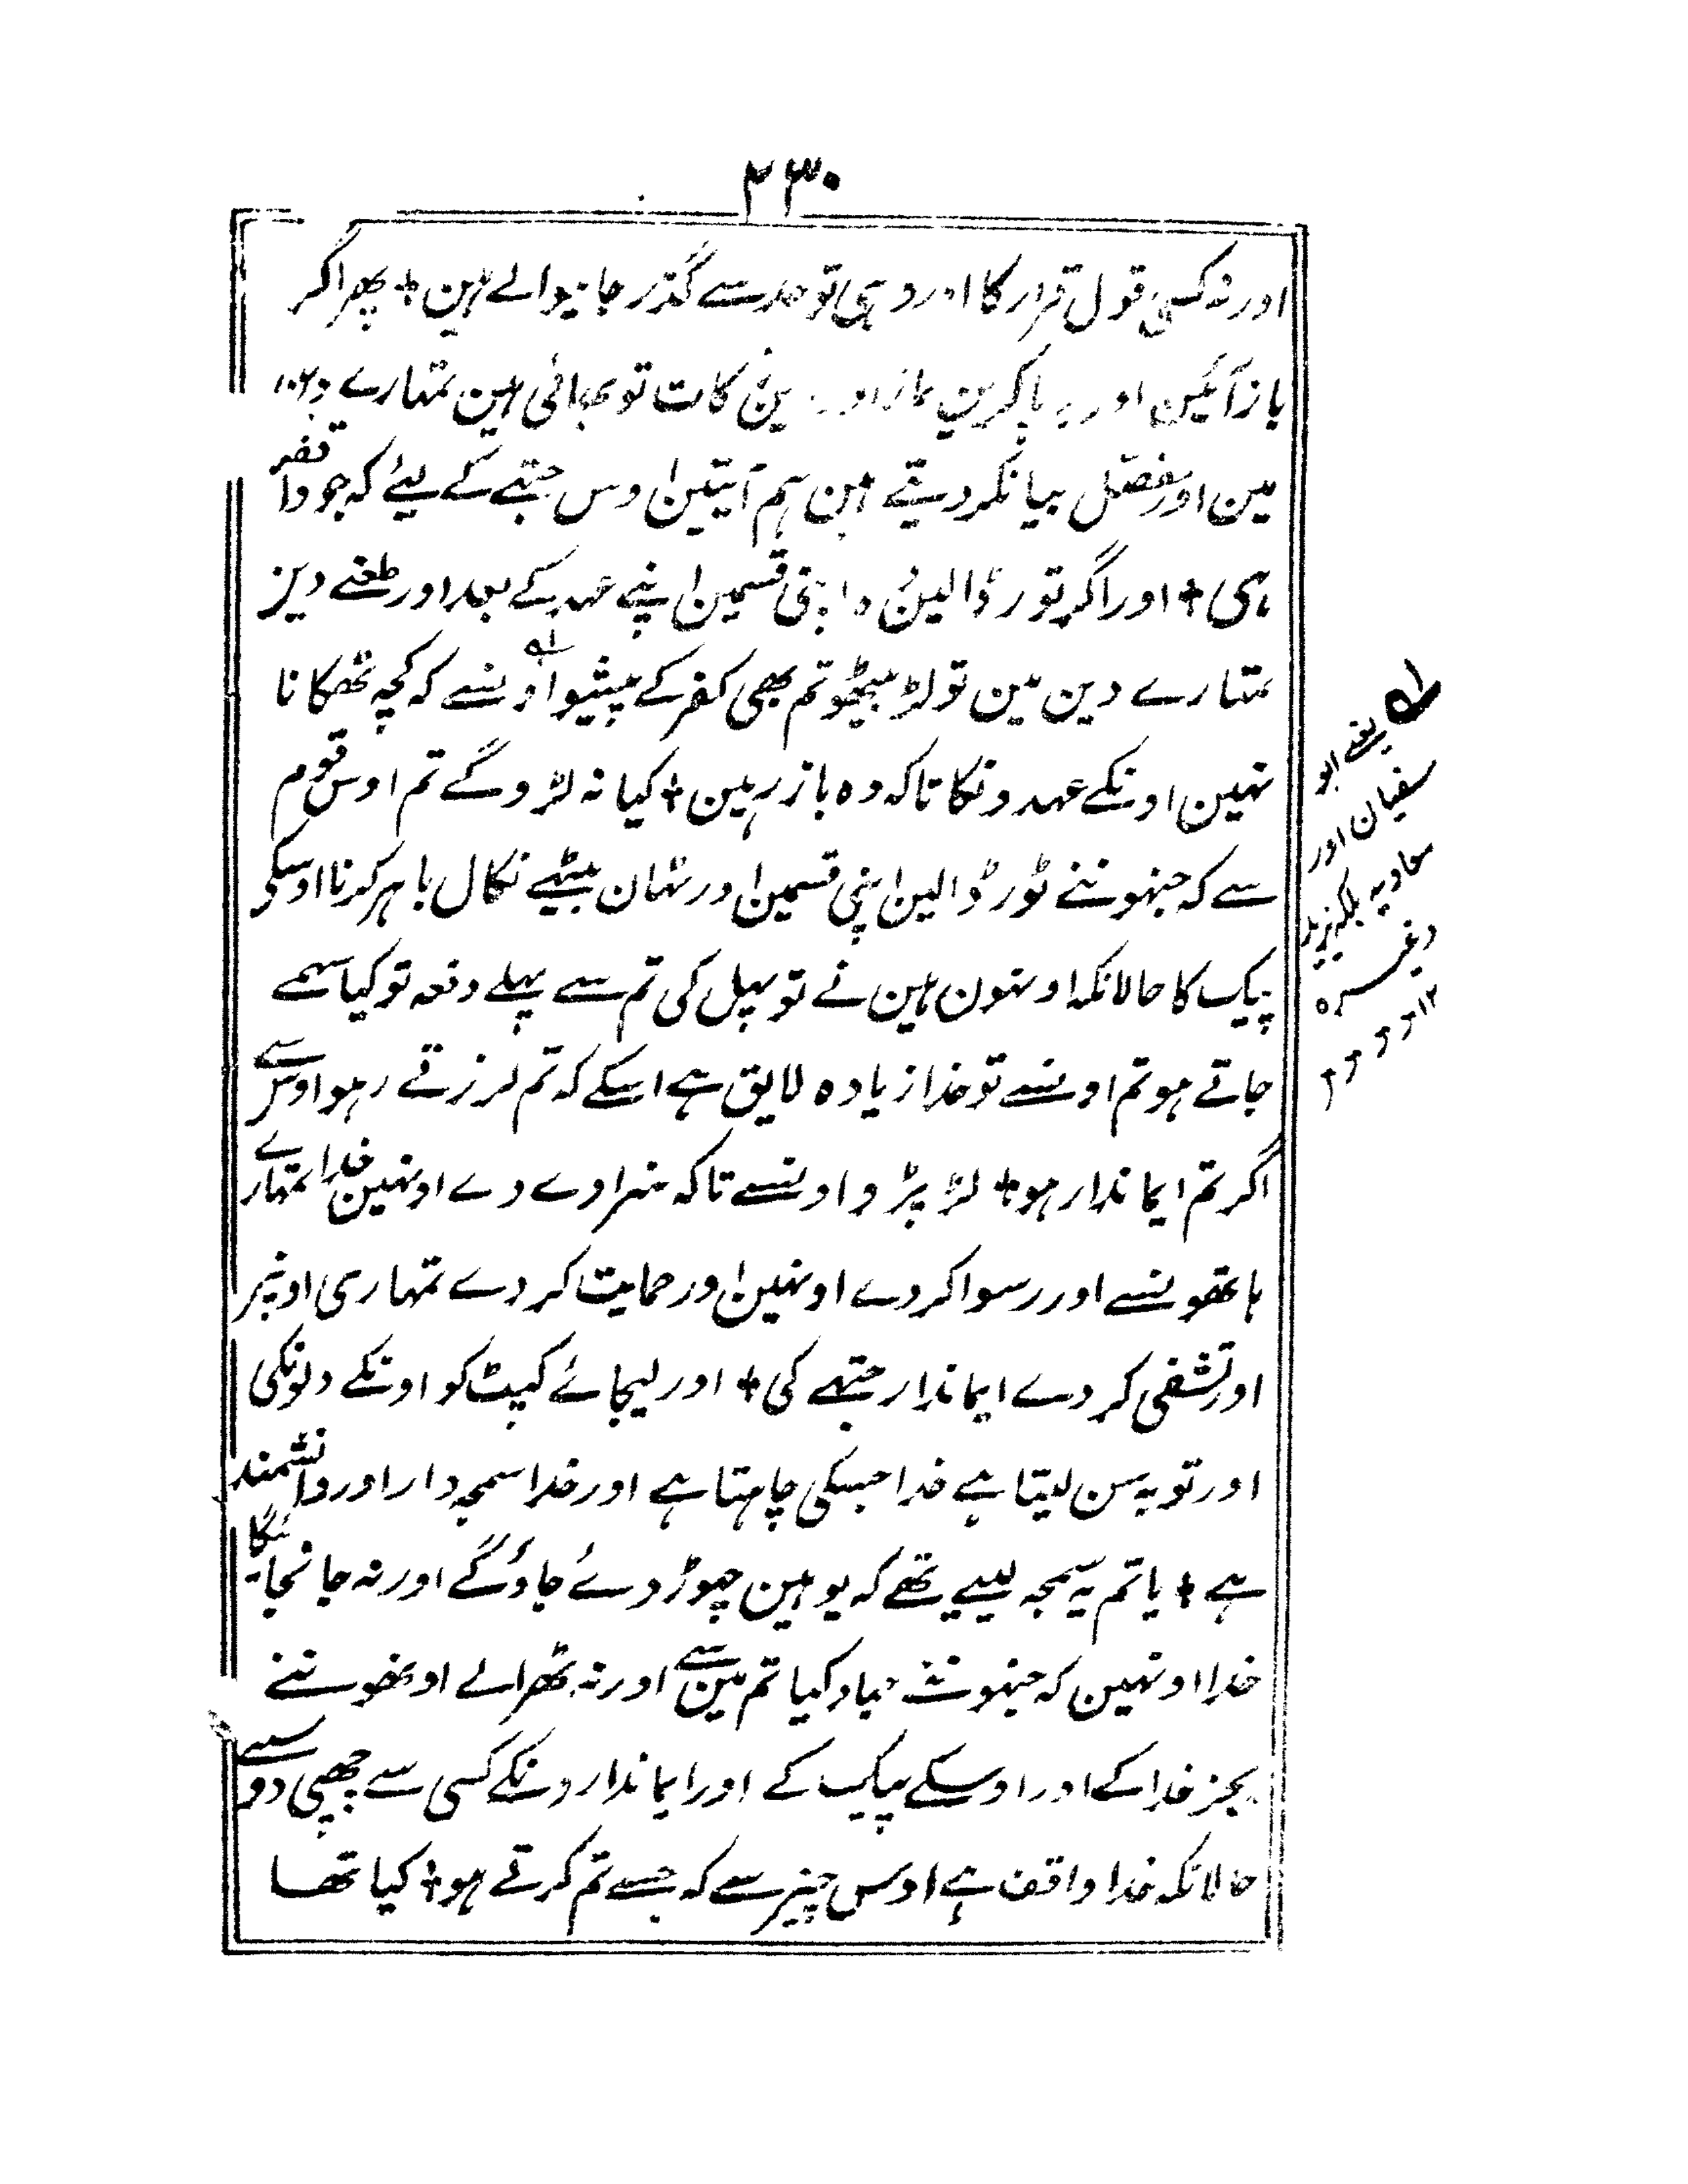 ۲۳۰
اور نہ کسی قول قرار کا اور وہی تو حد سے گذر جانیوالے ہین + پھر اگر
باز آئین اور برپا کرین نماز اور دین زکات تو بھائی ہین تمہارے دین
مین اور مفصّل بیانکر دیتے ہین ہم آیتین اوس جتہے کے لیئے کہ جو واقف
ہی + اور اگر توڑ ڈالین وہ اپنی قسمین اپنے عہد کے بعد اور طعنے دین
تمہارے دین مین تو لڑ بیٹھو تم بھی کفر کے پیشوا اونسے کہ کچہ ٹھکانا
نہین اونکے عہدونکا تاکہ وہ باز رہین + کیا نہ لڑوگے تم اوس قوم
سے کہ جنہوننے توڑ ڈالین اپنی قسمین اور ٹہان بیٹھے نکال باہر کرنا اوسکے
پیک کا حالانکہ اونہون ہین نے تو پہل کی تم سے پہلے دفعہ تو کیا سہمے
جاتے ہو تم اونسے تو خدا زیادہ لایق ہے اسکے کہ تم لرزتے رہو اوس سے
اگر تم ایماندار ہو + لڑ پڑو اونسے تاکہ سزا دے دے اونہین خدا تمہارے
ہاتھونسے اور رسوا کردے اونہین اور حمایت کردے تمہاری اونپر
اور تشفی کردے ایماندار جتہے کی + اور لیجائے کپٹ کو اونکے دلونکی
اور توبہ سن لیتا ہے خدا جسکی چاہتا ہے اور خدا سمجہ دار اور دانشمند
ہے + یا تم یہ سمجہ لیے تھے کہ یوہین چہوڑ دئے جاؤگے اور نہ جانچا جائیگا
خدا اونہین کہ جنہوننے جہاد کیا تم مین سے اور نہ ٹھرالے اونھوننے
بجز خدا کے اور اوسکے پیک کے اور ایماندارونکے کسی سے چھپی دوستی
حالانکہ خدا واقف ہے اوس چیز سے کہ جسے تم کرتے ہو + کیا تھا
یعنے ابو
سفیان اور
معاویہ بلکہ یزید
وغیرہ
۱۲